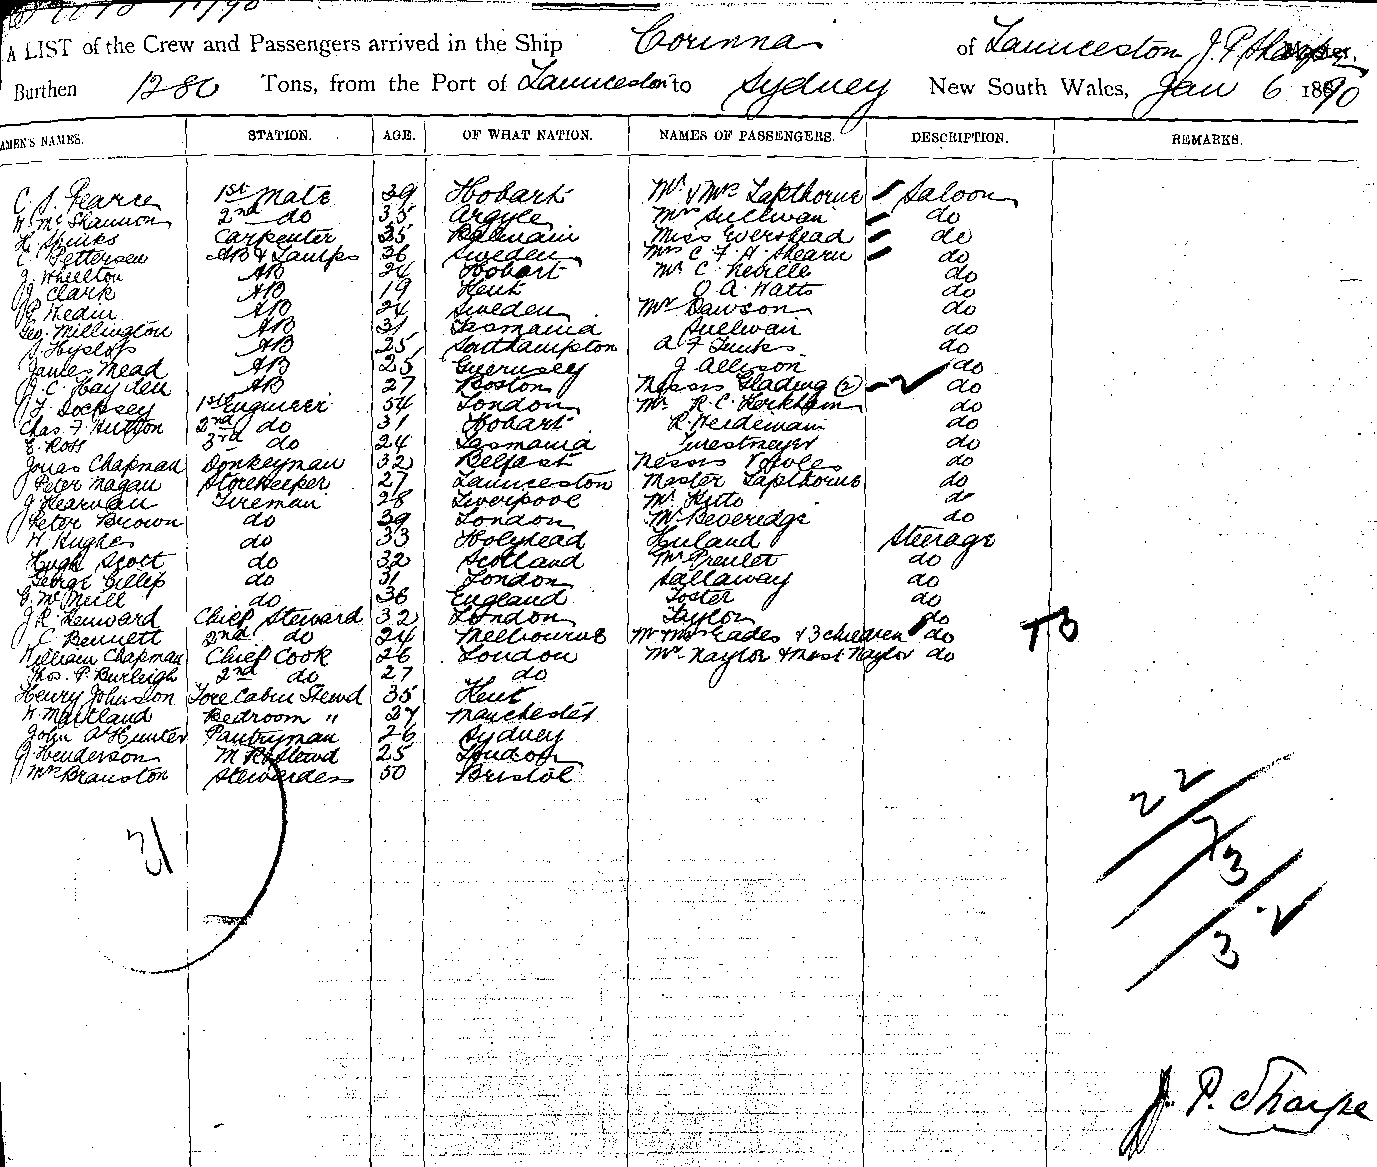 A LIST of the Crew and Passengers arrived in the Ship Corinna of Launceston J. P. Sharpe
Burthen 1280 Tons, from the Port of Launceston to Sydney New South Wales, Jan 6 1890
AMEN'S NAMES. STATION. AGE. OF WHAT NATION. NAMES OF PASSENGERS. DESCRIPTION. REMARKS.
C. S. Pearce 1st Mate 39 Hobart Mr & Mrs Lapthorne Saloon
W. McShannon 2nd do 35 Argyle Mrs Sullivan do
H. Spinks Carpenter 35 Balmain Miss Evershead do
C. Pettersen AB & Lamps 36 Sweden Mrs C. F. A. Shearn do
J. Wheelton AB 24 Hobart Mr C. Neville do
J. Clark AB 19 Kent O. A. Watts do
Hedin AB 24 Sweden Mr Dawson do
Geo. Millington AB 31 Tasmania Sullivan do
S. Hyslop AB 25 Southampton A F Tunks do
James Mead AB 25 Guernsey J Allison do
J. C. Hayden AB 27 Boston Messrs Glading (2) do
Docksey 1st Engineer 54 London Mr R. C. Kirkham do
Chas. F. Hutton 2nd do 31 Hobart R. Heidemann do
E. Ross 3rd do 24 Tasmania do
Jonas Chapman Donkeyman 32 Belfast Messrs Vowles do
Peter Magan Storekeeper 27 Launceston Master Lapthorne do
J Kearnan Fireman 28 Liverpool Mr Kitto do
Peter Brown do 39 London Mr Beveredge do
W Hughes do 33 Holyhead Steerage
Hugh Scott do 32 Scotland Mr do
George Gillip do 31 London Sallaway do
McNeill do 36 England Foster do
J. R. Lenward Chief Steward 32 London Taylor do
J. C. Bennett 2nd do 24 Melbourne Mr Mrs Eades & 3 children do
William Chapman Chief Cook 26 London Mrs Naylor & Mast Naylor do
Thos. F. Burleigh 2nd do 27 do
Henry Johnson Fore Cabin Stewd 35 Kent
W. Maitland Bedroom " 27 Manchester
John A Hunter Pantryman 26 Sydney
J Henderson M R Stewd 25 London
Mrs Branston Stewardess 50 Bristol
22
31
3
3 2
J. P. Sharpe